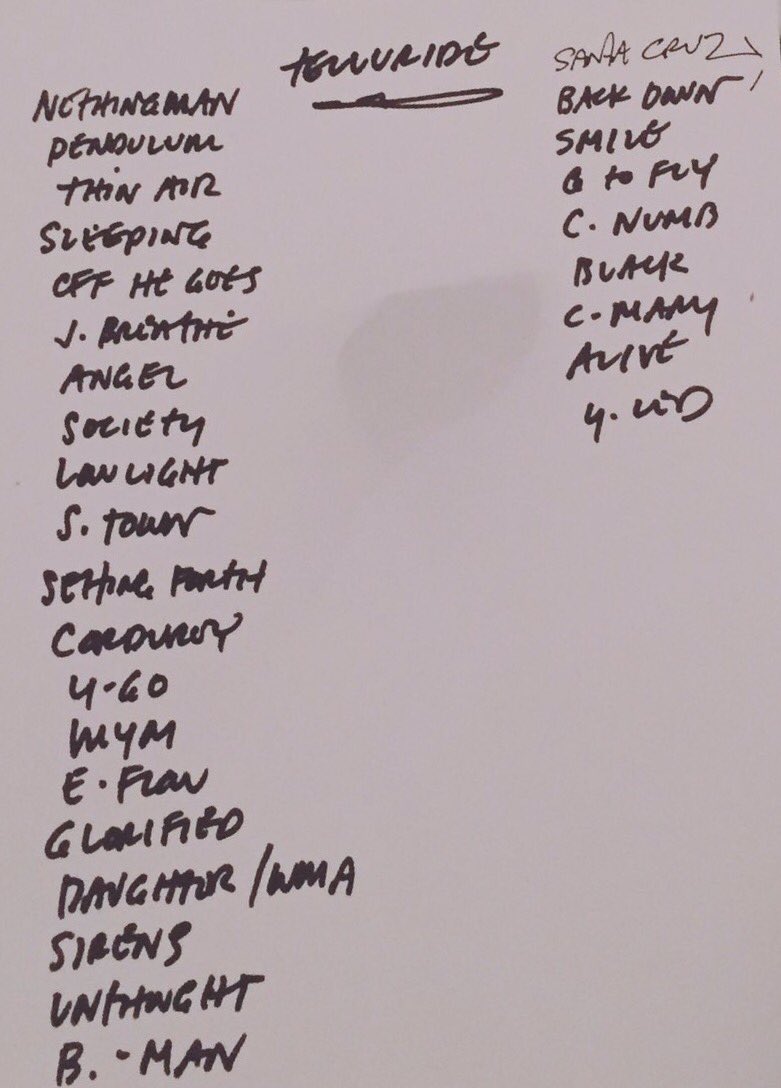 TELLURIDE
NOTHINGMAN
PENDULUM
THIN AIR
SLEEPING
OFF HE GOES
J. BREATHE
ANGEL
SOCIETY
LOW LIGHT
S. TOWN
SETTING FORTH
CORDUROY
U-GO
MYM
E. FLOW
GLORIFIED
DAUGHTER / WMA
SIRENS
UNTHOUGHT
B. - MAN
SANTA CRUZ
BACK DOWN
SMILE
G TO FLY
C. NUMB
BLACK
C. MARY
ALIVE
Y. LED